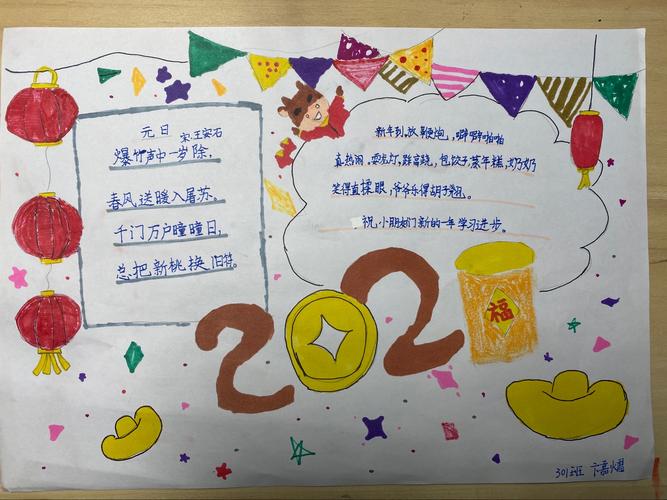 元日
宋·王安石
爆竹声中一岁除,
春风送暖入屠苏。
千门万户曈曈日,
总把新桃换旧符。
新年到,放鞭炮,噼噼啪啪
真热闹。耍龙灯,踩高跷,包饺子蒸年糕,奶奶
笑得直揉眼,爷爷乐得胡子翘。
祝小朋友们新的一年学习进步。
202
福
301班 卞嘉熠